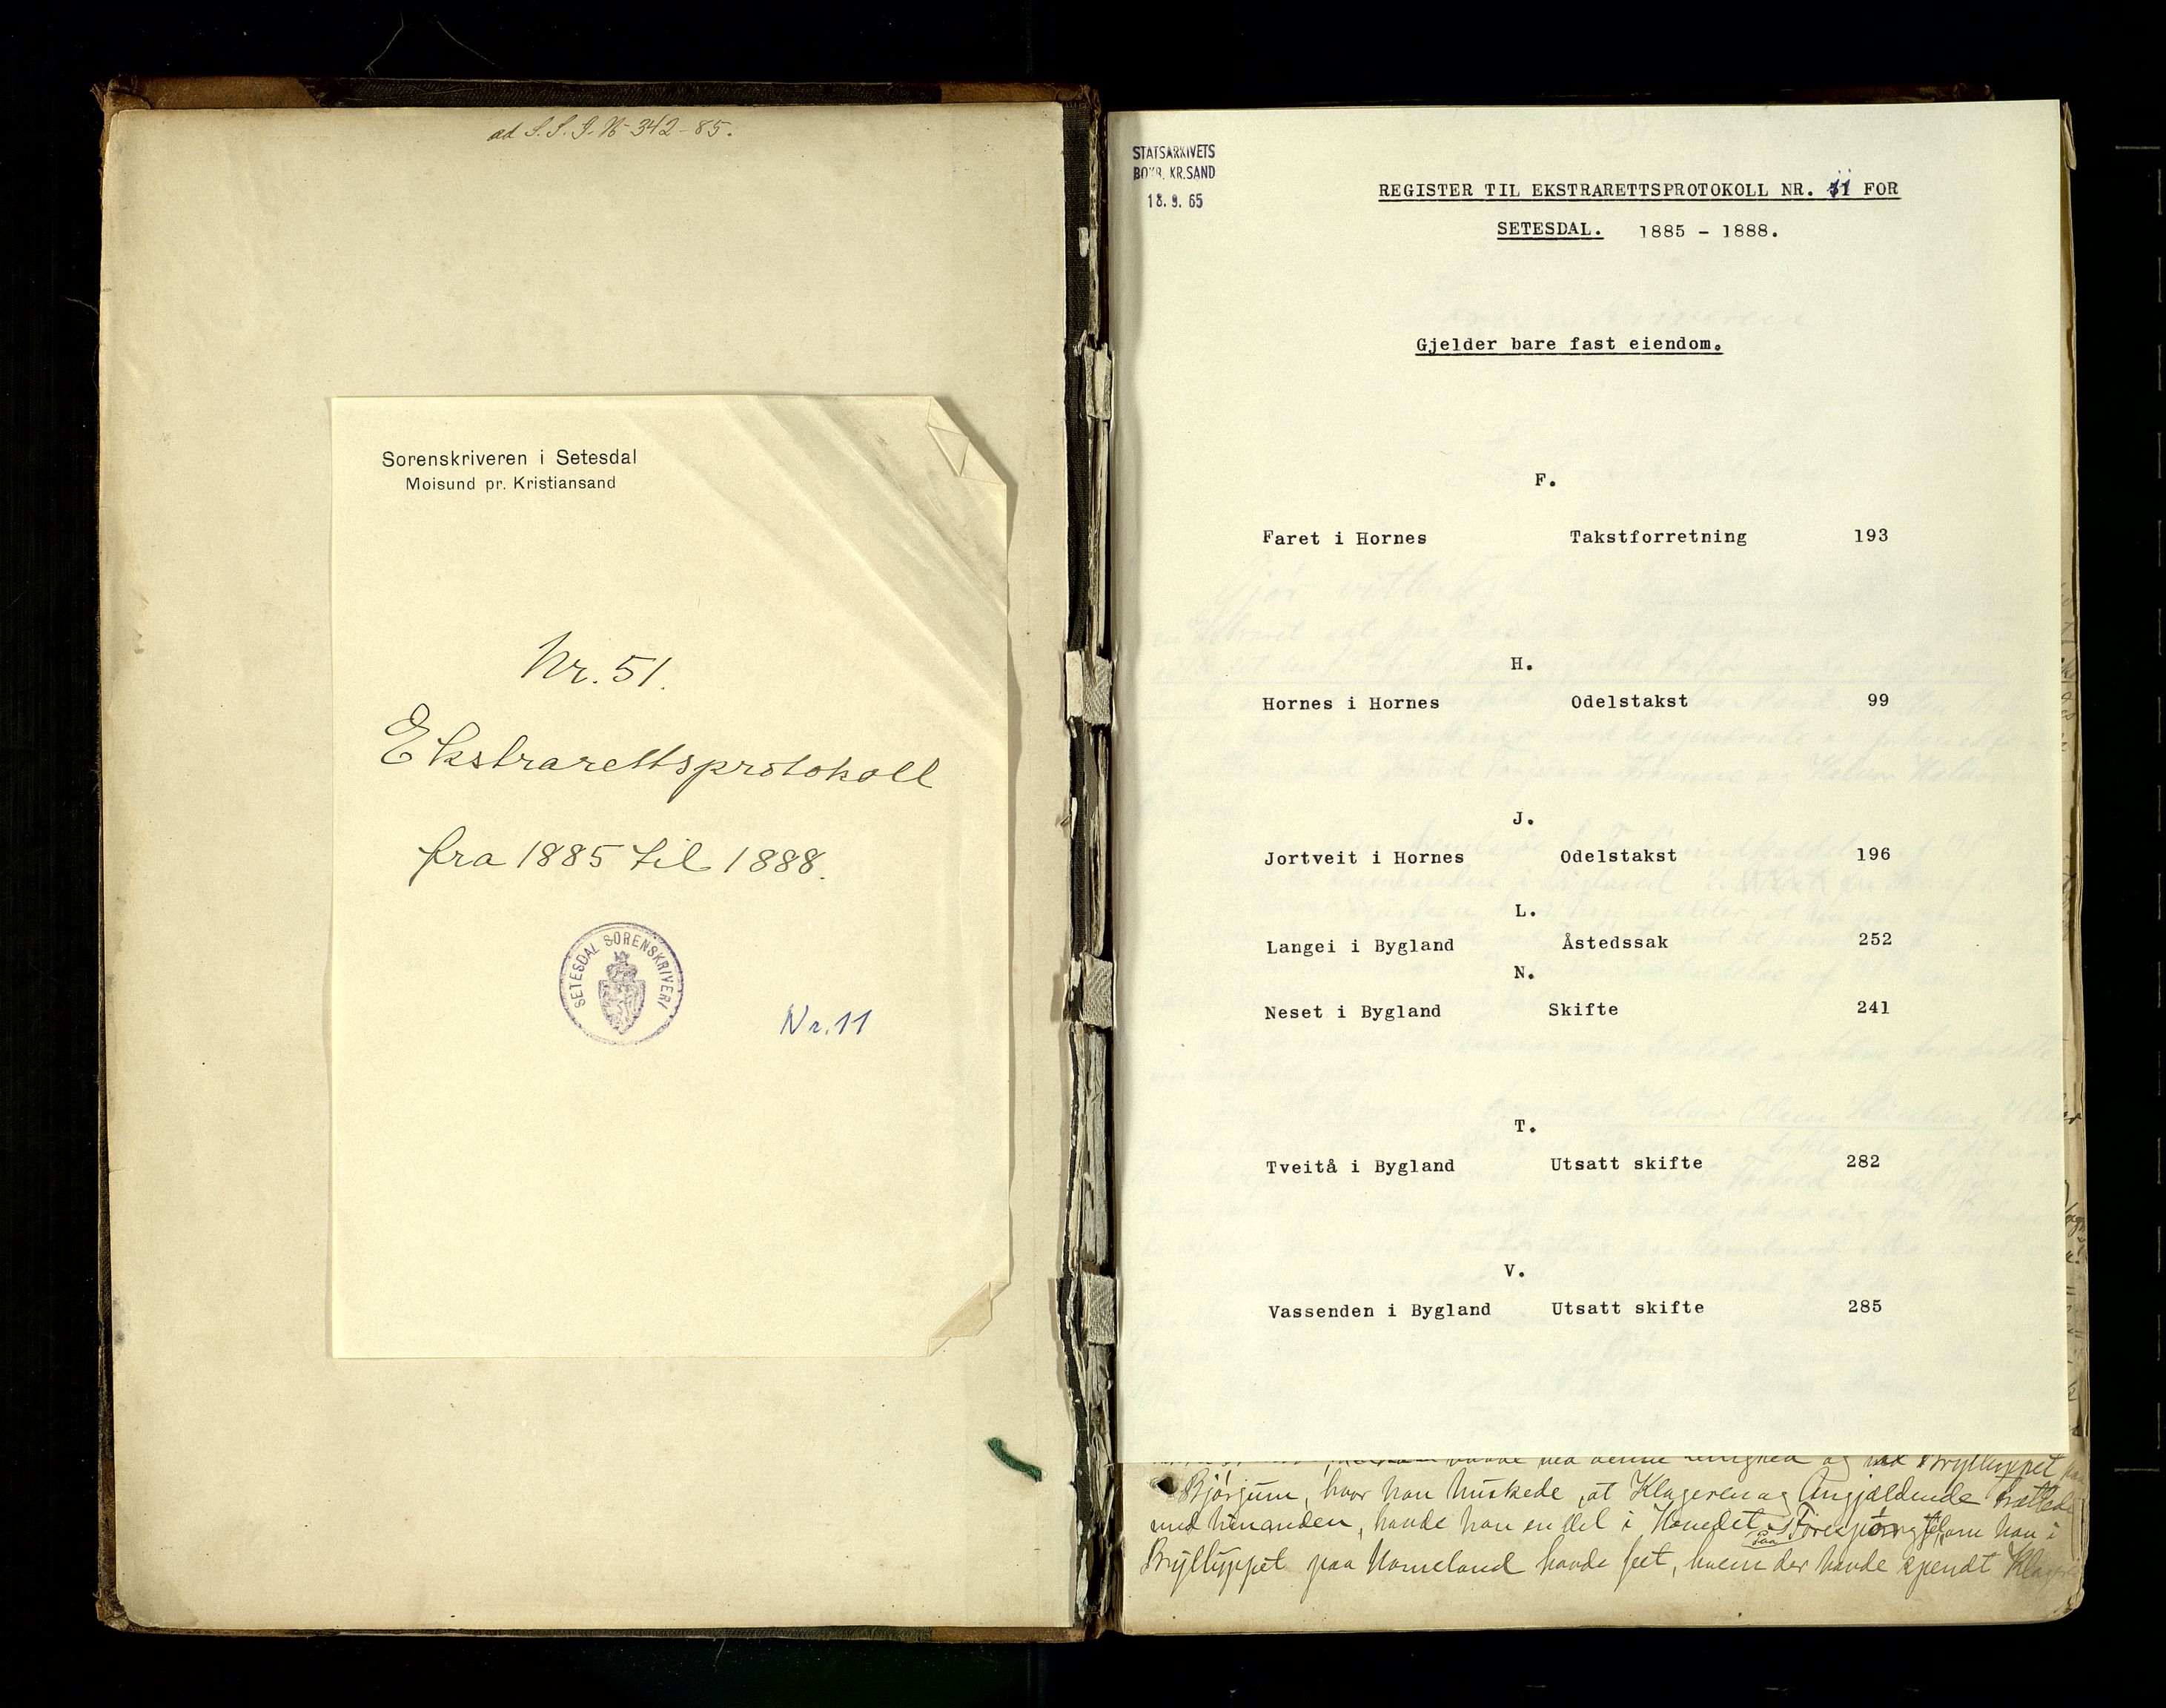 ad S. S. J. N 342-85.
Sorenskriveren i Setesdal
Moisund pr. Kristiansand
Nr. 51.
Ekstrarettsprotokoll
fra 1885 til 1888.
SETESDAL SORENSKRIVERI
Nr. 11
STATSARKIVETS
BOKB. KR.SAND
18. 9. 65
REGISTER TIL EKSTRARETTSPROTOKOLL NR. 11 FOR
SETESDAL. 1885 - 1888.
Gjelder bare fast eiendom.
F.
Faret i Hornes Takstforretning 193
H.
Hornes i Hornes Odelstakst 99
J.
Jortveit i Hornes Odelstakst 196
L.
Langei i Bygland Åstedssak 252
N.
Neset i Bygland Skifte 241
T.
Tveitå i Bygland Utsatt skifte 282
V.
Vassenden i Bygland Utsatt skifte 285
havde ved denne Leilighed og Bryllyppet
Bjørgum, hvor han huskede, at Klageren og Angjældende trættede
med hinanden, havde han en del i Hovedet. Paa Forespørgsel om han i
Bryllyppet paa Homeland havde seet, hvem der havde spendt